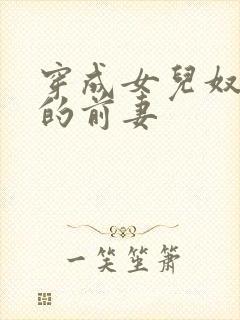 穿成女兒奴
的前妻
一笑笙簫